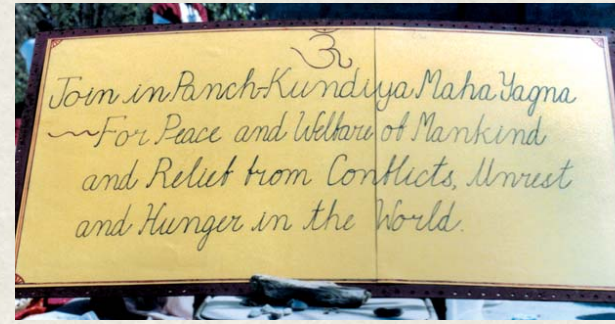 ॐ
Join in Panch-Kundiya Maha Yagna
~For Peace and Welfare of Mankind
and Relief from Conflicts, Unrest
and Hunger in the World.